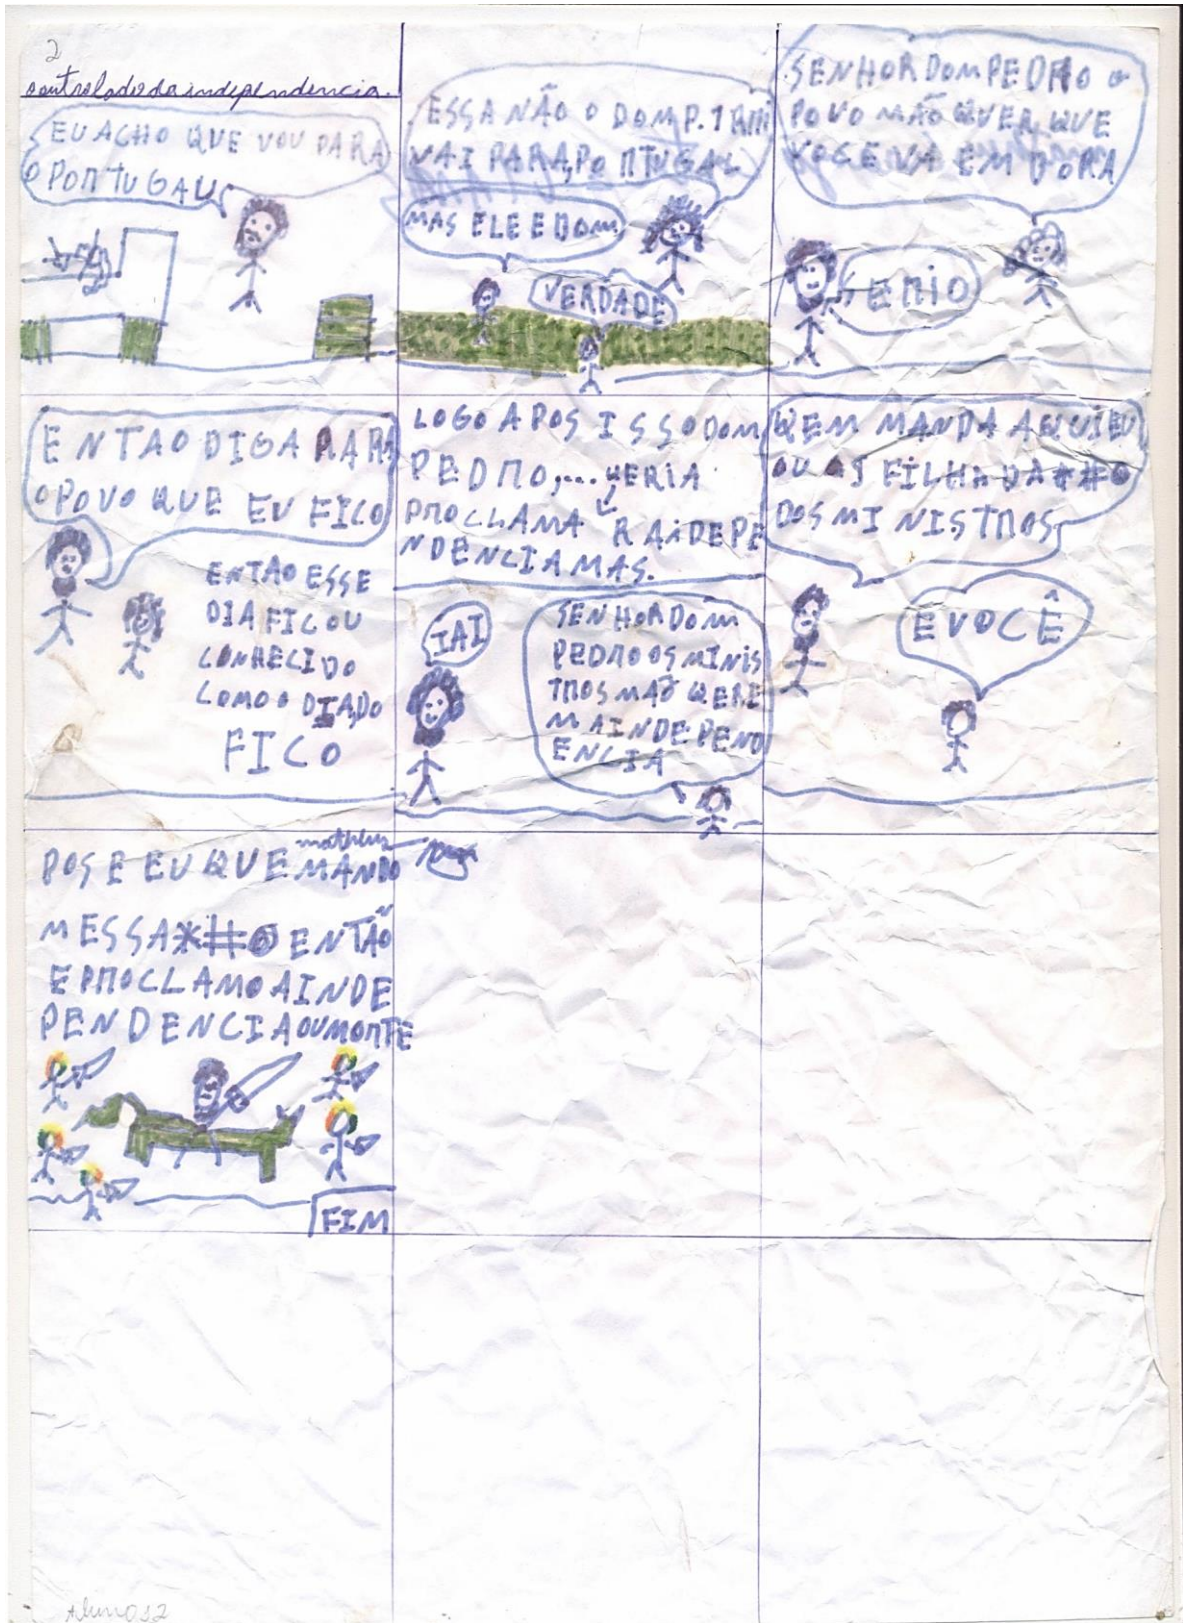 2
outro lado da independencia.
EU ACHO QUE VOU PARA
O PORTUGAU
ESSA NÃO O DOM P. 1
VAI PARA, PORTUGAL
MAS ELE E DOM
VERDADE
SENHOR DOM PEDRO O
POVO MAÕ QUER QUE
VOCE VA EM DORA
SERIO
ENTAO DIGA PARA
O POVO QUE EU FICO
ENTAO ESSE
DIA FICOU
CONHECIDO
COMO O DIA, DO
FICO
LOGO APOS ISSO DOM
PEDRO,... QERIA
PROCLAMA R A IDEPE
NDENCIA MAS.
IAI
SENHOR DOM
PEDRO OS MINIS
TROS MAÕ QERE
M A INDEPEND
ENCIA
QEM MANDA AQUI EU
OU AS FILHA DA *#@
DOS MINISTROS
E VOCÊ
POS E EU QUE MANDO
matheus
MESSA *#@ ENTÃO
E PROCLAMO A INDE
PENDENCIA OU MORTE
FIM
Aluno 12